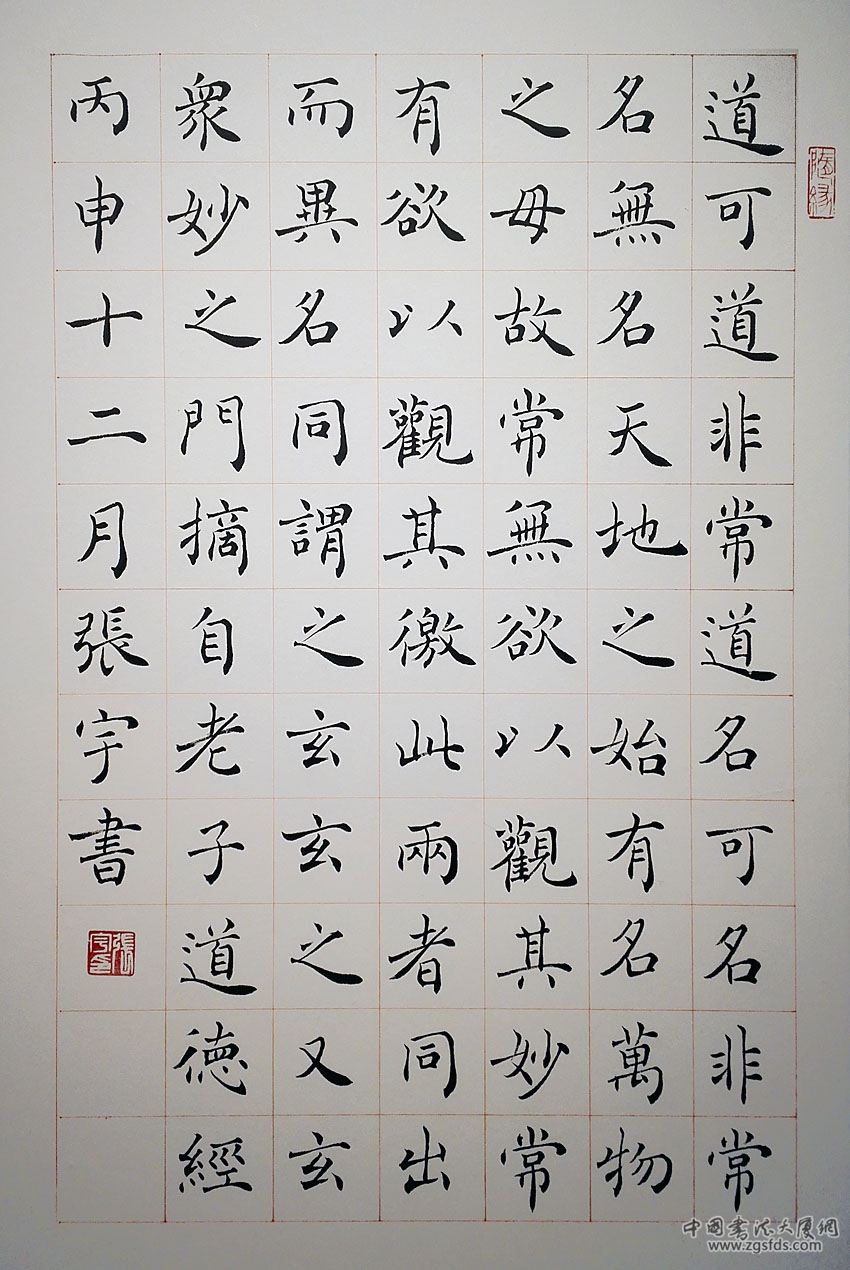 隨緣
道可道非常道名可名非常
名無名天地之始有名萬物
之母故常無欲以觀其妙常
有欲以觀其徼此兩者同出
而異名同謂之玄玄之又玄
衆妙之門摘自老子道德經
丙申十二月張宇書
張宇印
中國书法大厦網
www.zgsfds.com